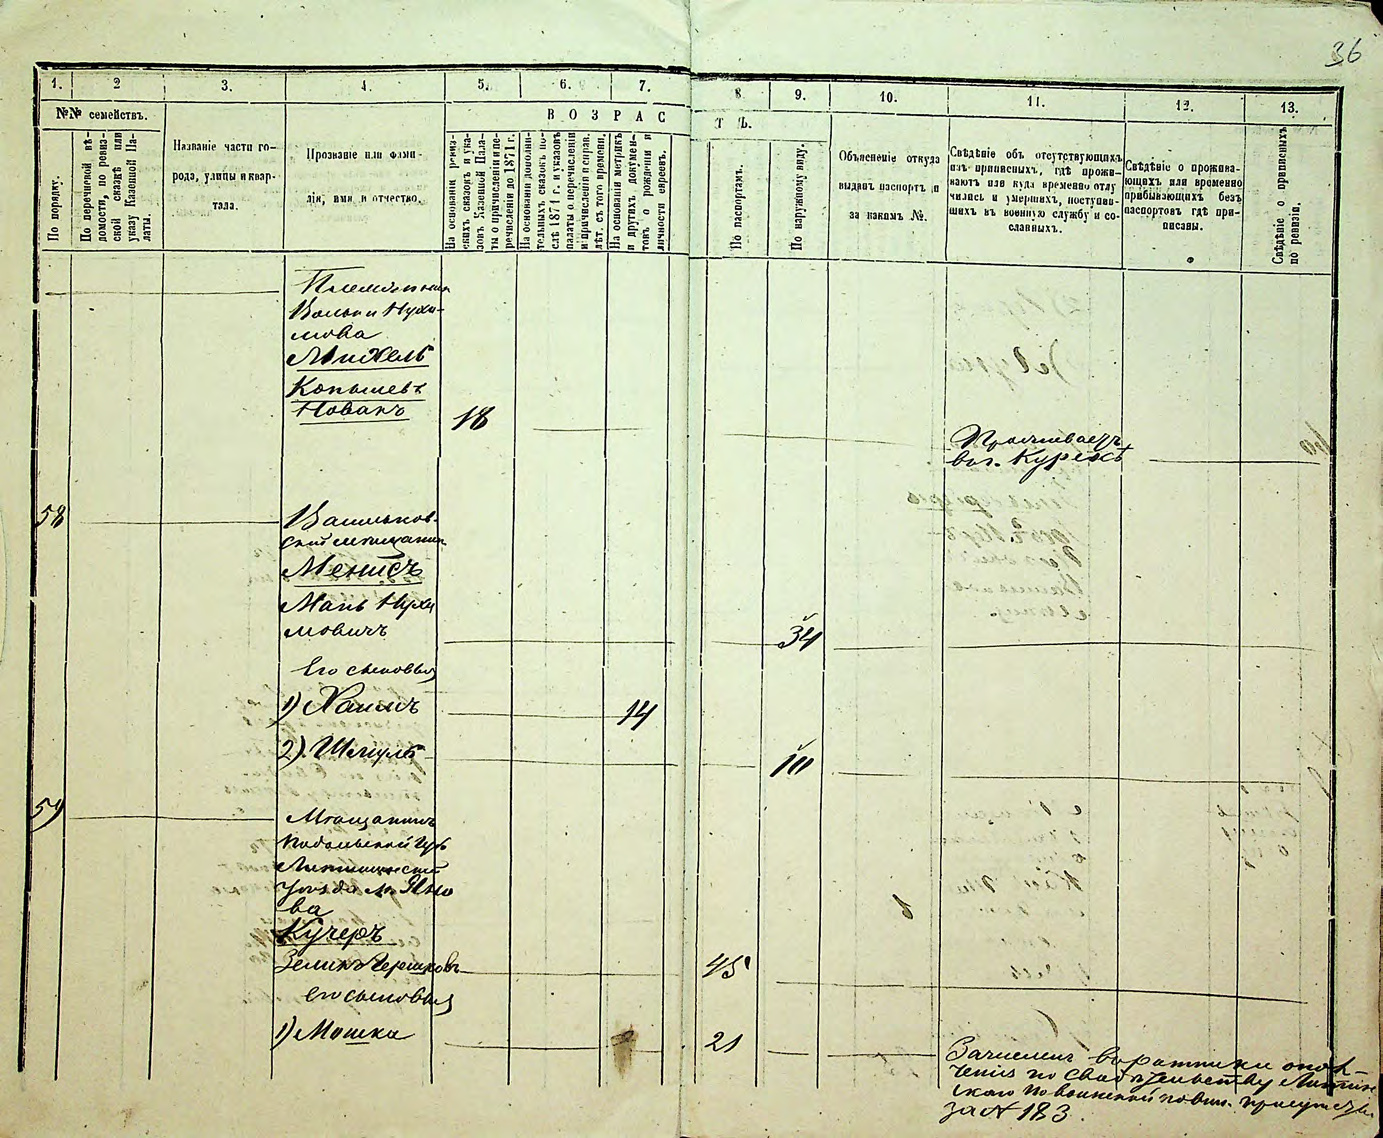 36
1. 2 3. 4. 5. 6. 7. 8. 9. 10. 11. 12. 13.
№№ семействъ.
ВОЗРАСТЪ.
По порядку.
По перечневой вѣ-
домости, по ревиз-
ской сказкѣ или
указу Казенной Па-
латы.
Названіе части го-
рода, улицы и квар-
тала.
Прозваніе или фами-
лія, имя и отчество.
На основаніи ревиз-
скихъ сказокъ и ука-
зовъ Казенной Пала-
ты о причисленіи и пе-
речисленіи до 1871 г.
На основаніи дополни-
тельныхъ сказокъ по-
слѣ 1871 г. и указовъ
палаты о перечисленіи
и причисленіи и справ.
лѣт. съ того времени.
На основаніи метрикъ
и другихъ докумен-
товъ о рожденіи и
личности евреевъ.
По паспортамъ.
По наружному виду.
Объясненіе откуда
выданъ паспортъ и
за какимъ №.
Свѣдѣніе объ отсутствующихъ
изъ приписныхъ, гдѣ прожи-
ваютъ или куда временно отлу
чились и умершихъ, поступив-
шихъ въ военную службу и со-
сланныхъ.
Свѣдѣніе о прожива-
ющихъ или временно
прибывающихъ безъ
паспортовъ гдѣ при-
писаны.
Свѣдѣніе о приписныхъ
по ревизіи.
Племянникъ
Вольки Нухи-
мова
Михель
Копылевъ
Новакъ
18
Проживаетъ
въ г. Курскѣ
58
Васильков-
скій мѣщанин
Менисъ
Мань Нухи
мовичъ
34
Его сыновья
1) Хаимъ
14
2). Шмуль
10
59
Мѣщанинъ
Подольской Губ
Литинскій
Уѣзда м. Яно
ва
Кучеръ
Зеликъ Гершковъ
45
Его сыновья
1) Мошка
21
Зачисленъ въ ратники опол-
ченія по свидѣтельству Литин
скаго по воинской повин. присутствія
за № 183.